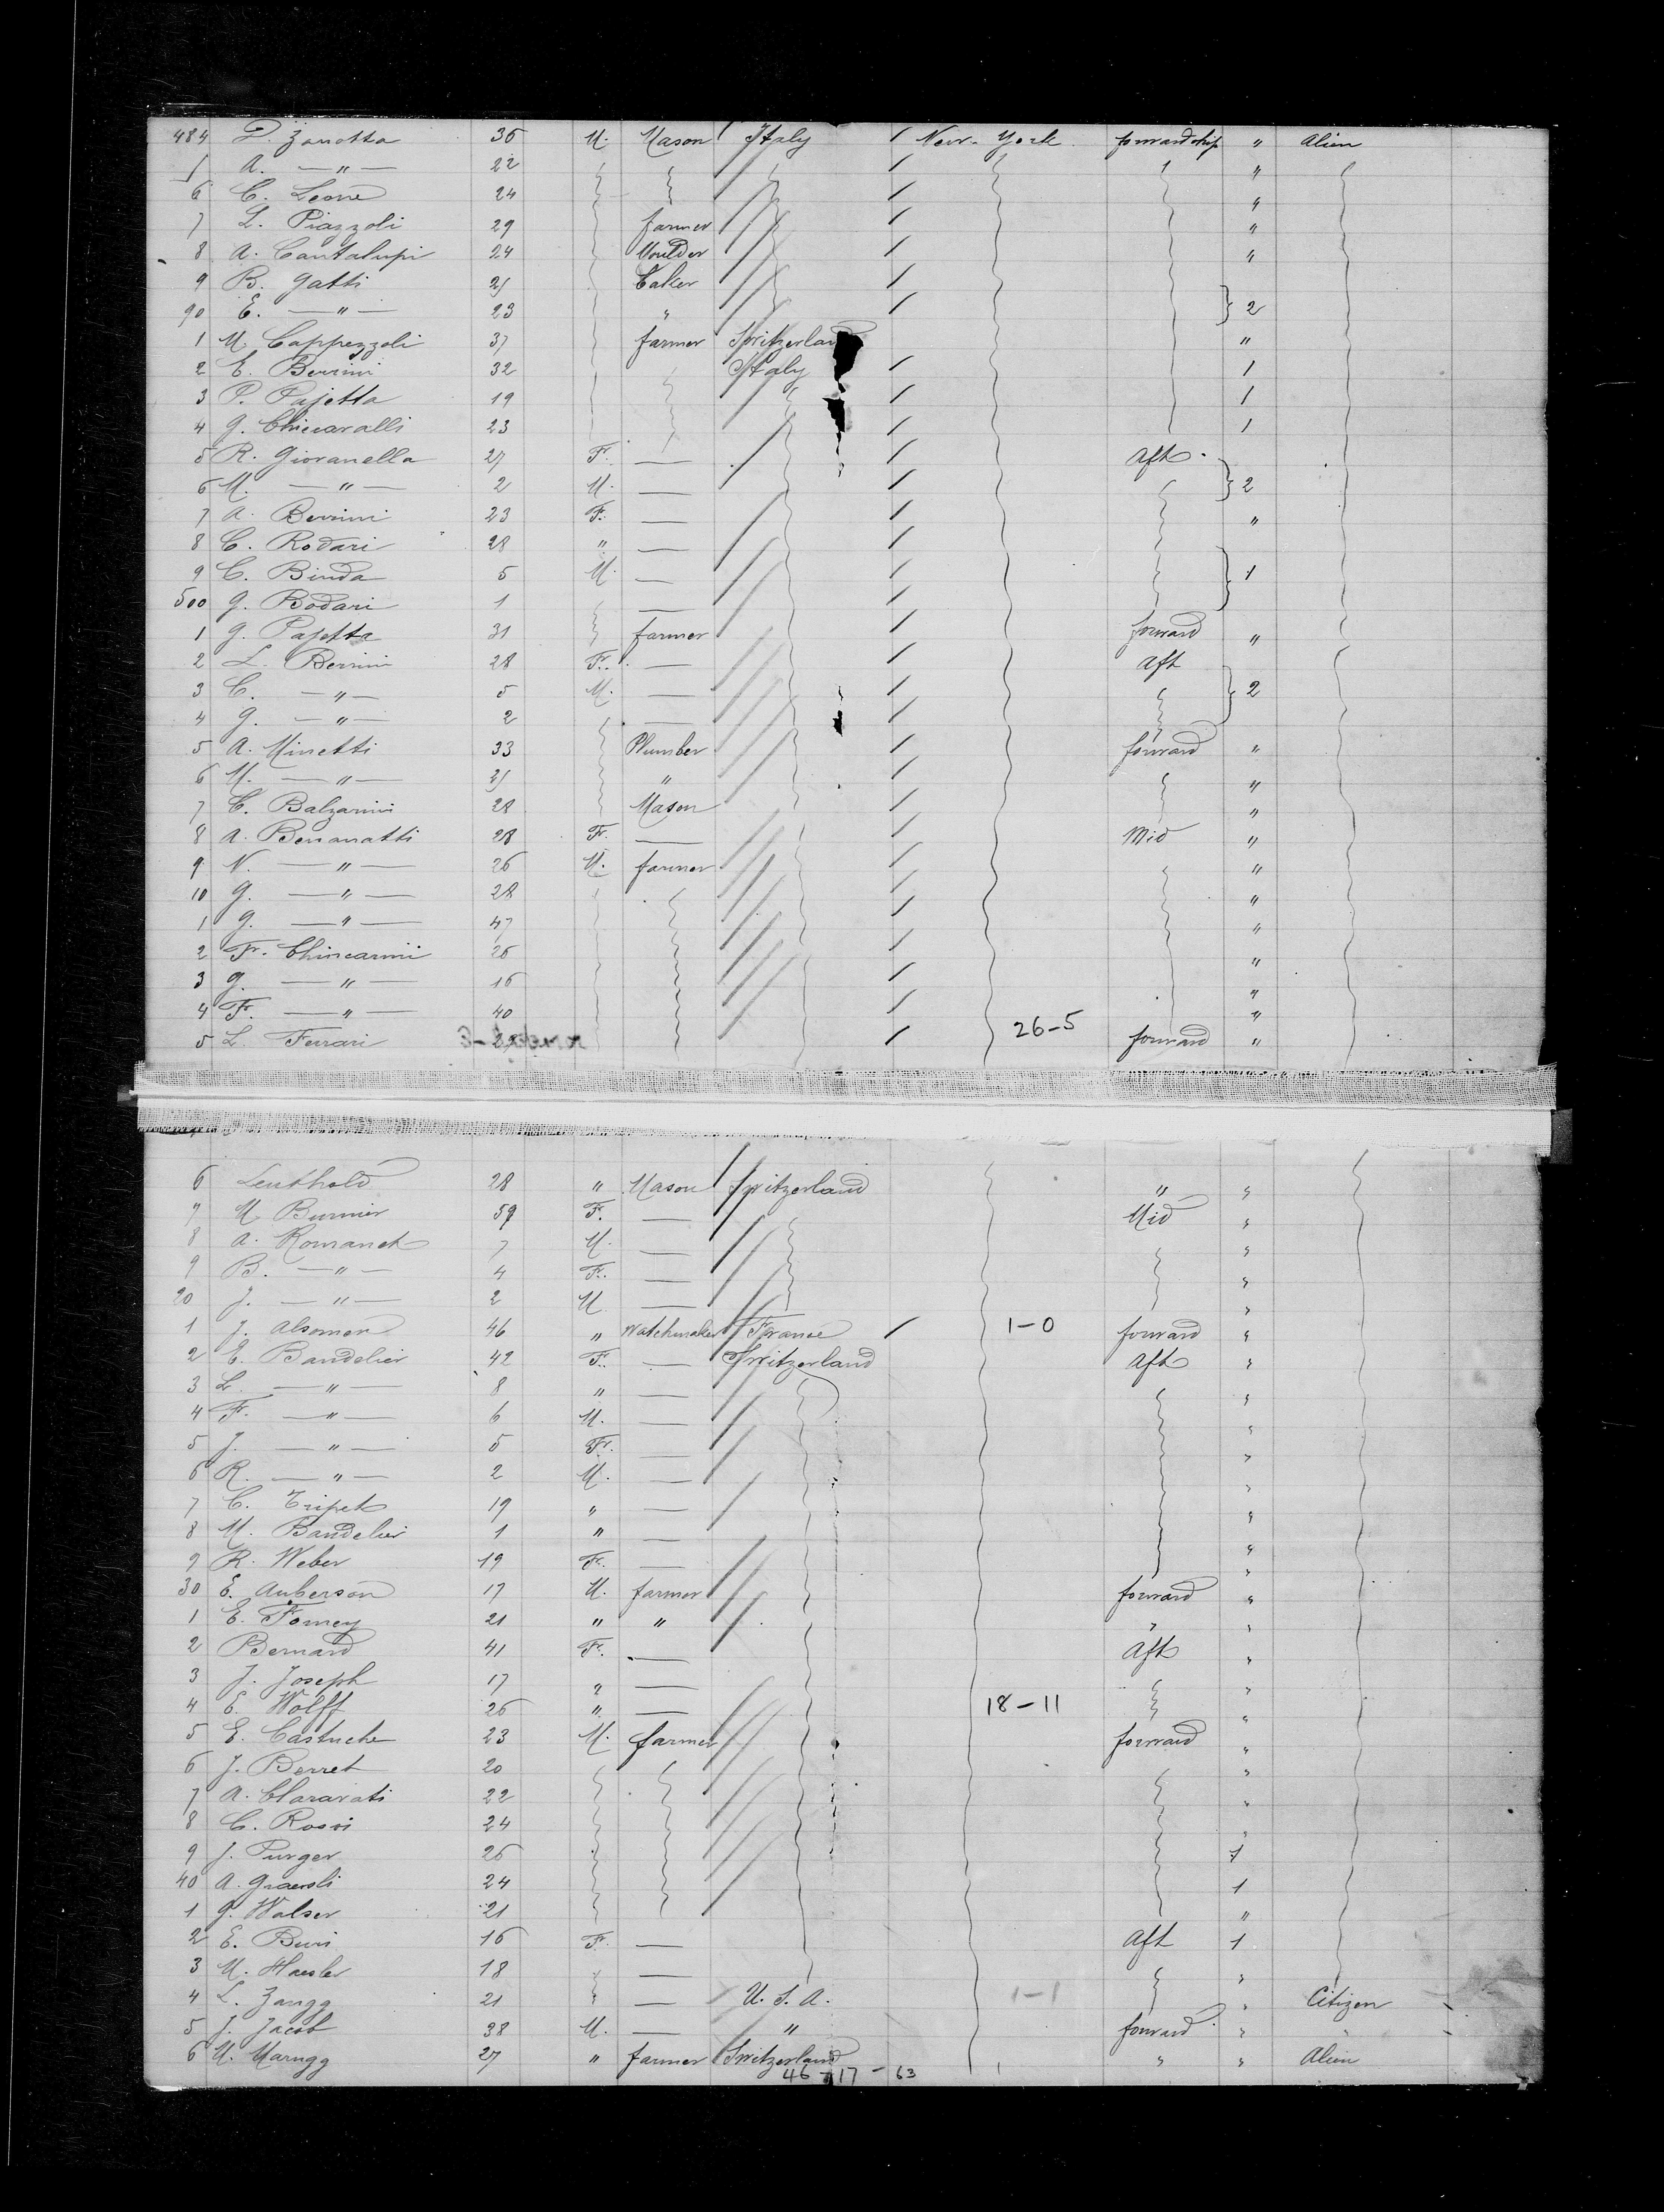 484 P. Zanotta 36 M. Mason Italy / New-York forwardship " Alien
A. —"— 22 / "
6 C. Leone 24 / "
7 L. Piazzoli 29 farmer / "
8 A. Cantalupi 24 Moulder / "
9 B. Gatti 21 Baker /
90 E. —"— 23 " / } 2
1 M. Cappezzoli 37 farmer Switzerland "
2 E. Berrini 32 Italy / 1
3 P. Pajetta 19 / 1
4 G. Chiaravalli 23 / 1
5 R. Giovanella 27 F. — / Aft
6 M. —"— 2 M. — / } 2
7 A. Berrini 23 F. — / "
8 C. Rodari 28 " — /
9 C. Binda 5 M. — / } 1
500 G. Rodari 1 — /
1 G. Pajetta 31 farmer / forward "
2 L. Berrini 28 F. — / aft
3 C. —"— 5 M. — / } 2
4 G. —"— 2 — /
5 A. Minetti 33 Plumber / forward "
6 M. —"— 21 " / "
7 C. Balzarini 28 Mason / "
8 A. Benanatti 28 F. — / Mid "
9 N. —"— 26 M. farmer / "
10 G. —"— 28 / "
1 G. —"— 47 / "
2 F. Chincarini 26 / "
3 G. —"— 16 / "
4 F. —"— 40 / "
5 L. Ferrari / 26-5 forward "
6 Leuthold 28 " Mason Switzerland " "
7 M. Burnier 59 F. — Mid "
8 A. Romanet 7 M. — "
9 B. —"— 4 F. — "
20 J. —"— 2 M — "
1 J. Alsomon 46 " Watchmaker France / 1-0 forward "
2 E. Bandelier 42 F. — Switzerland Aft "
3 L. —"— 8 " — "
4 F. —"— 6 M. — "
5 J. —"— 5 F. — "
6 R. —"— 2 M. — "
7 C. Tripet 19 " — "
8 M. Bandelier 1 " — "
9 R. Weber 19 F. — "
30 E. Auberson 17 M. farmer forward "
1 E. Forney 21 " " " "
2 Bernard 41 F. — Aft "
3 J. Joseph 17 " — "
4 E. Wolff 26 " — 18-11 "
5 E. Castuche 23 M. farmer forward "
6 J. Berret 20 "
7 A. Claravati 22 "
8 C. Rossi 24 "
9 J. Purger 26 1
40 A. 24 1
1 G. Walser 21 "
2 E. Buri 16 F. — Aft 1
3 M. Haesler 18 — "
4 L. Zaugg 21 — U.S.A. 1-1 " Citizen
5 J. Jacob 38 M. — " forward " "
6 M. Marugg 27 " farmer Switzerland " " Alien
46-17-63